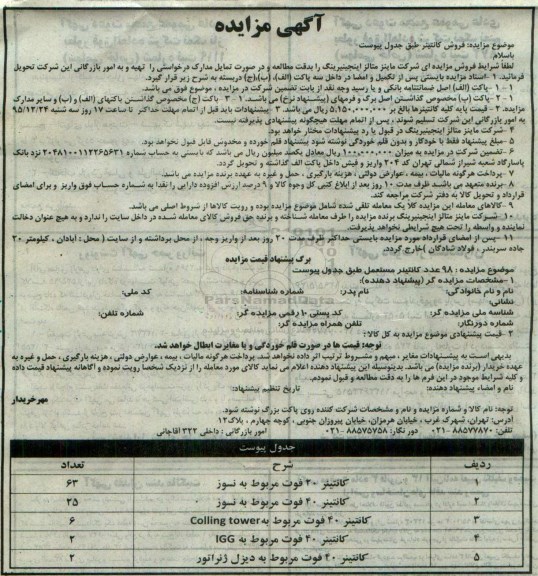 آگهی مزایده
موضوع مزایده: فروش کانتینر طبق جدول پیوست
باسلام.
لطفا شرایط فروش مزایده ای شرکت ماینز متالز اینجینیرینگ را بدقت مطالعه و در صورت تمایل مدارک درخواستی را تهیه و به امور بازرگانی این شرکت تحویل
فرمائید. ۱ -اسناد مزایده بایستی پس از تکمیل و امضا در داخل سه پاکت (الف)، (ب)،(ج) دربسته به شرح زیر قرار گیرد.
۱ – ۱ –پاکت (الف) اصل ضمانتنامه بانکی و یا رسید وجه نقد از بابت تضمین شرکت در مزایده ، موضوع فوق می باشد.
۲ – ۱ –پاکت (ب) مخصوص گذاشتن اصل برگ و فرمهای (پیشنهاد نرخ) می باشد. ۳ – ۱ –پاکت (ج) مخصوص گذاشتن پاکتهای (الف) و (ب) و سایر مدارک
مزایده. ۲ – قیمت پایه کلیه کانتینرها بالغ بر ۵,۱۵۰,۰۰۰,۰۰۰ ریال می باشد. ۳ –پیشنهادات باید قبل از اتمام مهلت حداکثر تا ساعت ۱۷ روز سه شنبه ۹۵/۱۲/۲۴
به امور بازرگانی این شرکت تسلیم شوند ، پس از اتمام مهلت هیچگونه پیشنهادی پذیرفته نیست.
۴ –شرکت ماینز متالز اینجینیرینگ در قبول یا رد پیشنهادات مختار خواهد بود.
۵ –مبلغ پیشنهاد فقط با خودکار و بدون قلم خوردگی نوشته شود پیشنهاد قلم خورده و مخدوش قابل قبول نخواهد بود.
۶ –تضمین شرکت در مزایده به میزان ۱۰۰,۰۰۰,۰۰۰ ریال معادل یکصد میلیون ریال می باشد که بایستی به حساب شماره ۲۰۴۸۱۰۰۱۱۲۲۶۵۶۳۱ نزد بانک
پاسارگاد شعبه شیراز شمالی تهران کد ۲۰۴ واریز و فیش داخل پاکت الف گذاشته و تحویل گردد.
۷ –پرداخت هرگونه مالیات ، بیمه ، عوارض دولتی ، هزینه بارگیری ، حمل و غیره به عهده برنده مزایده می باشد.
۸ –برنده متعهد می باشند ظرف مدت ۱۰ روز بعد از ابلاغ کتبی کل وجوه کالا و ۹ درصد ارزش افزوده دارایی را نقدا به شماره حساب فوق واریز و برای امضای
قرارداد و تحویل کالا به دفتر شرکت مراجعه کند.
۹ –کالاهای معامله این مزایده کلا یک معامله تلقی شده شامل موضوع مزایده بوده و رویت کالاها از شروط اصلی می باشد.
۱۰ –شرکت ماینز متالز اینجینیرینگ برنده مزایده را طرف معامله شناخته و برنده حق فروش کالای معامله شده در داخل سایت را ندارد و به هیچ عنوان دخالت
نماینده و واسطه را تحت هیچ شرایطی نخواهد پذیرفت.
۱۱ –پس از امضای قرارداد مورد مزایده بایستی حداکثر ظرف مدت ۲۰ روز بعد از واریز وجه ، از محل برداشته و از سایت ( محل : آبادان ، کیلومتر ۲۰
جاده سربندر ، فولاد شادگان )خارج گردد.
برگ پیشنهاد قیمت مزایده
موضوع مزایده : ۹۸ عدد کانتینر مستعمل طبق جدول پیوست
۱ –مشخصات مزایده گر (پیشنهاد دهنده):
نام و نام خانوادگی: نام پدر: شماره شناسنامه: کد ملی:
نشانی:
شناسه ملی مزایده گر: کد پستی ۱۰ رقمی مزایده گر: شماره تلفن:
شماره دورنگار: تلفن همراه مزایده گر:
۲ –قیمت پیشنهادی موضوع مزایده به کل کالا :
توجه: قیمت ها در صورت قلم خوردگی و یا مغایرت ابطال خواهد شد.
بدیهی است به پیشنهادات مغایر ، مبهم و مشروط ترتیب اثر داده نخواهد شد. پرداخت هرگونه مالیات ، بیمه ، عوارض دولتی ، هزینه بارگیری ، حمل و غیره به
عهده خریدار (برنده مزایده) می باشد. بدینوسیله این پیشنهاد دهنده اعلام می نماید کالای مورد معامله را از نزدیک شخصا رویت نموده و آگاهانه پیشنهاد قیمت داده
و کلیه شرایط موجود در این فرم ها را به دقت مطالعه و قبول نمودم.
نام و امضاء پیشنهاد دهنده: تاریخ تنظیم پیشنهاد:
مهر خریدار
توجه: نام کالا و شماره مزایده و نام و مشخصات شرکت کننده روی پاکت بزرگ نوشته شود.
آدرس: تهران، شهرک غرب ، خیابان هرمزان، خیابان پیروزان جنوبی ، کوچه چهارم ، پلاک۱۲
تلفن: ۸۸۵۷۷۸۷۰ –۰۲۱ دور نگار: ۸۸۵۷۵۷۵۸ –۰۲۱ امور بازرگانی : داخلی ۳۲۲ آقاجانی
جدول پیوست
ردیف شرح تعداد
کانتینر ۴۰ فوت مربوط به نسوز ۶۳
۲ کانتینر ۴۰ فوت مربوط به نسوز ۲۵
۳ کانتینر ۴۰ فوت مربوط به Colling tower ۶
۴ کانتینر ۴۰ فوت مربوط به IGG ۲
۵ کانتینر ۴۰ فوت مربوط به دیزل ژنراتور ۲
ParsNamadData